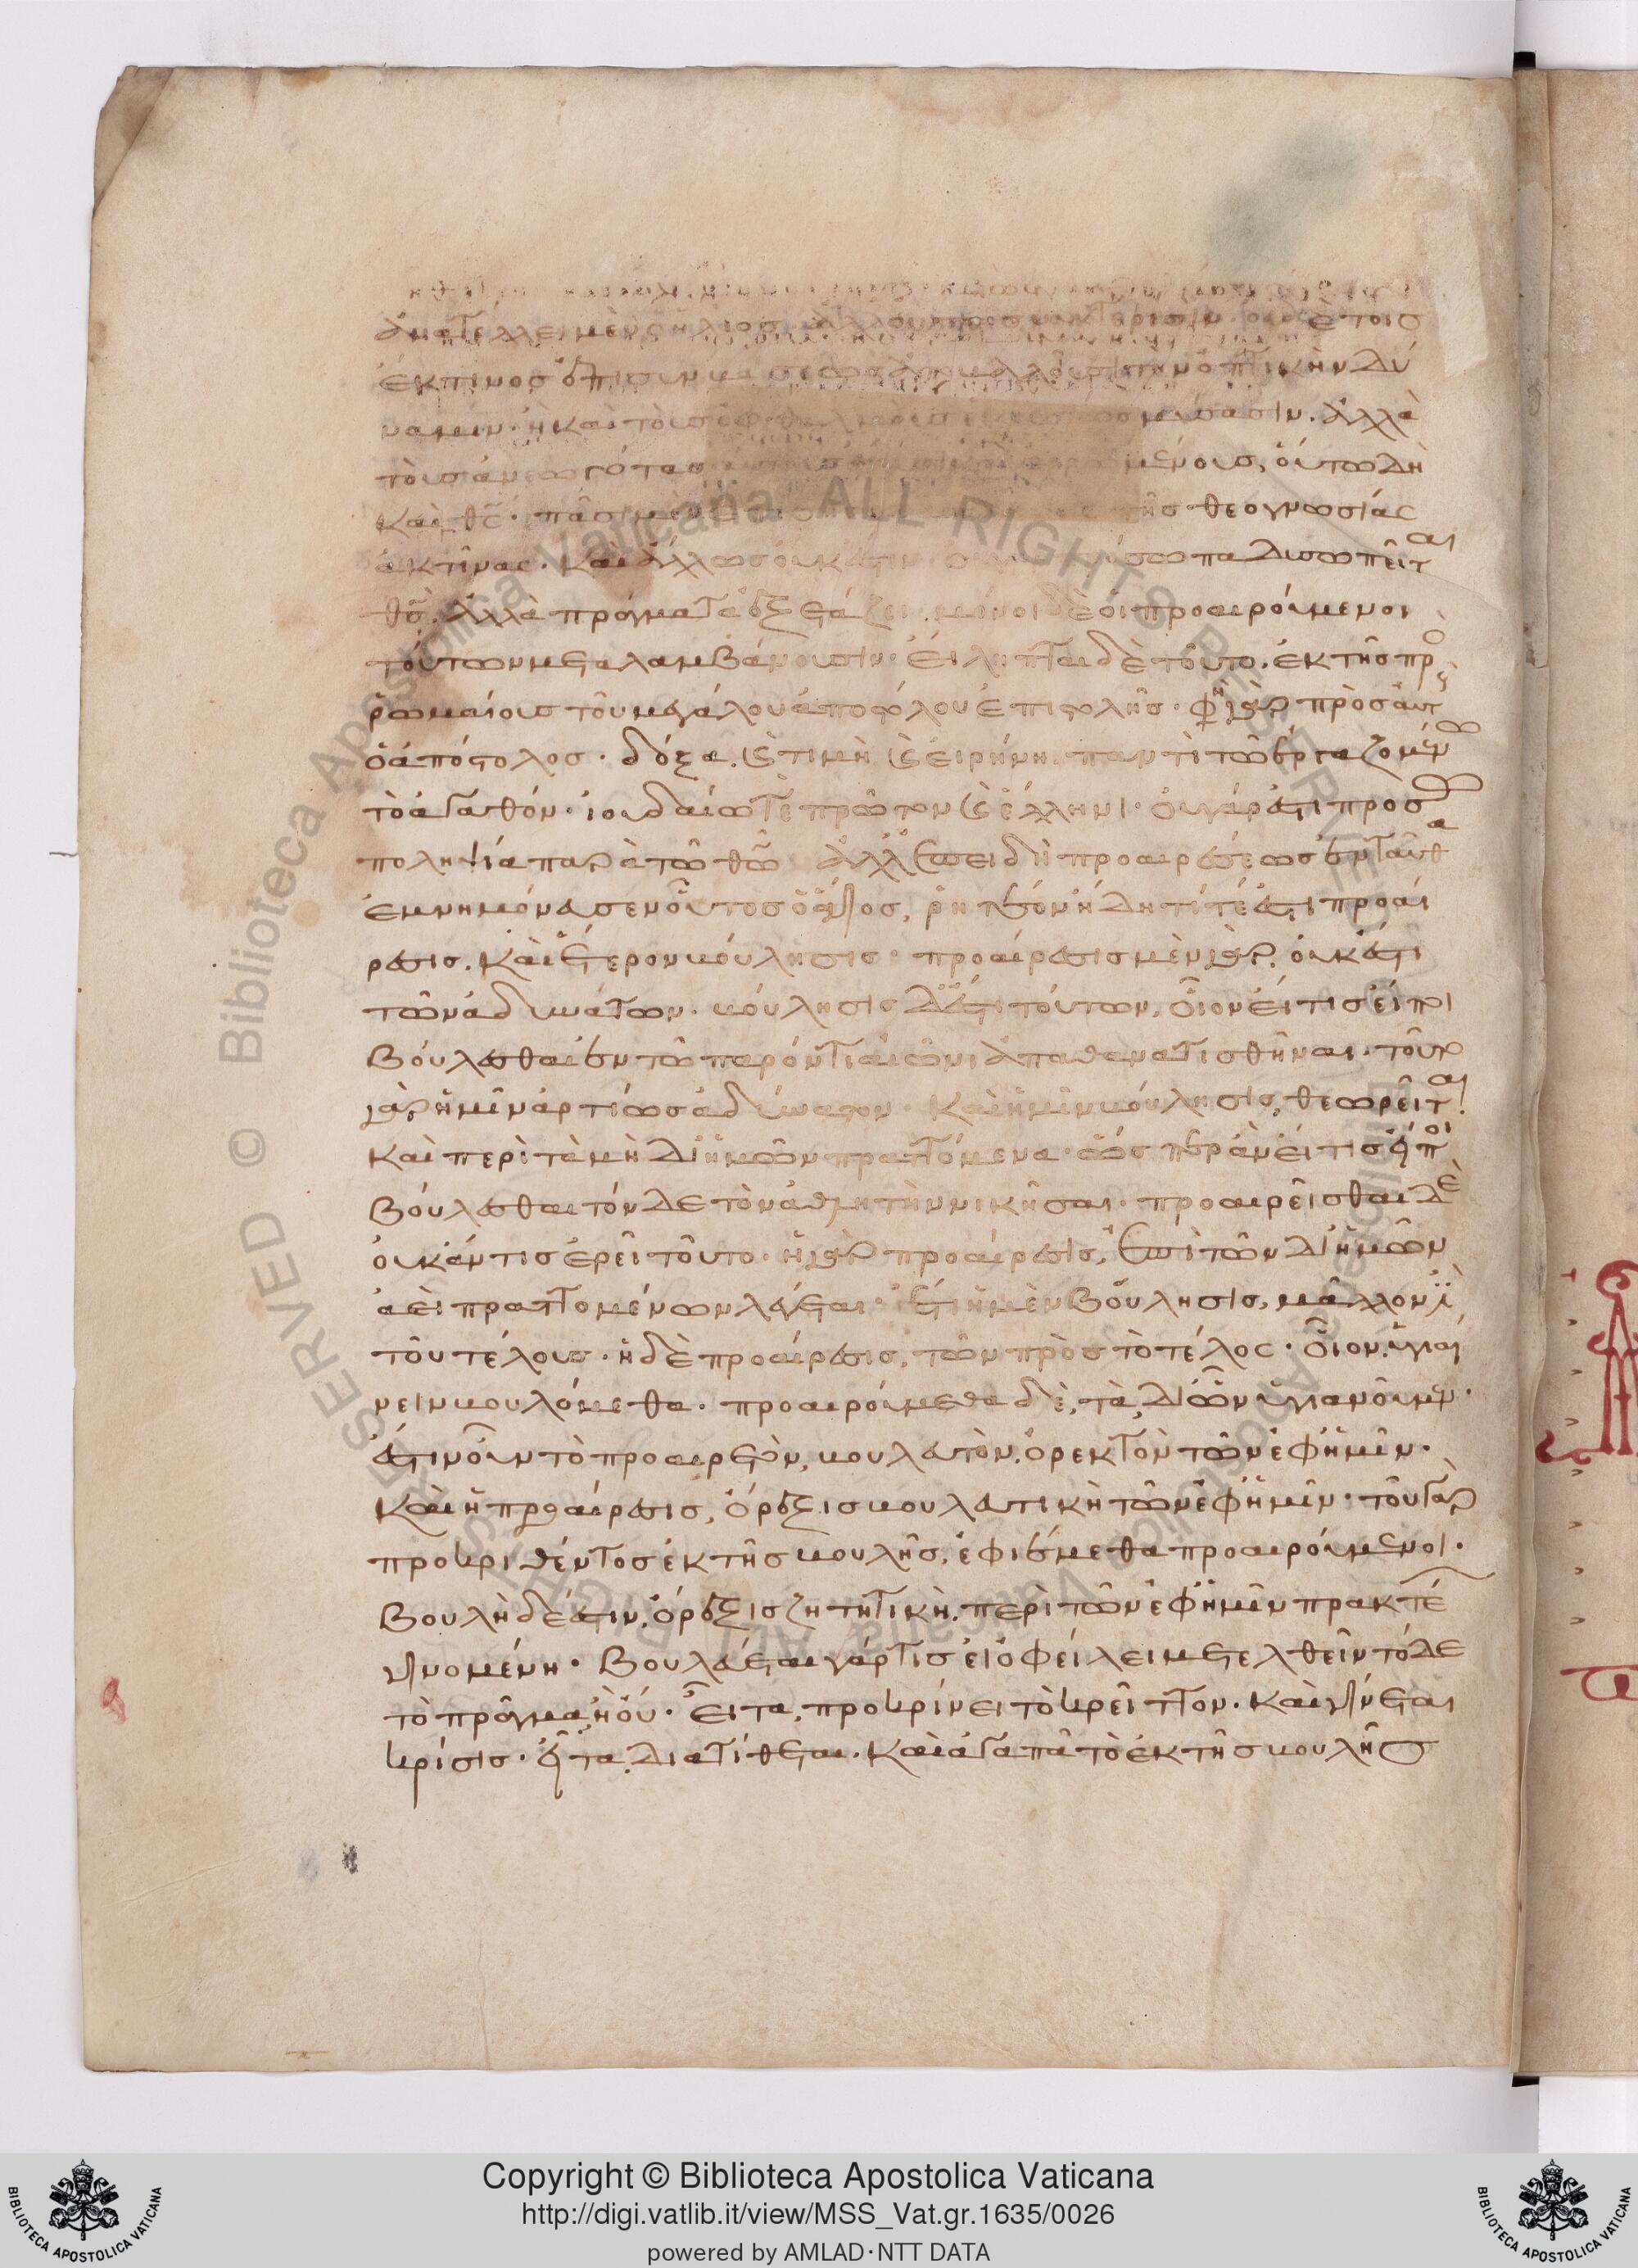 ἀνατέλλει μὲν ὁ ἥλιος τοῖς
ναμιν· ἢ καὶ τοὺς ὀφθαλμοὺς μύσασιν. ἀλλὰ
τοὺς ἀνεωγότας μένους, οὕτω δὴ
καὶ θς· πᾶσι μὲν τῆς θεογνωσίας
ἀκτῖνας. καὶ ἄλλως οὐκ ἔστιν προσωπα δυσωπεῖται
θς. ἀλλὰ πράγματα ἐξετάζει. μόνοι δὲ οἱ προαιρούμενοι
τούτων μεταλαμβάνουσιν· εἴληπται δὲ τοῦτο. ἐκ τῆς πρὸς
ῥωμαίους τοῦ μεγάλου ἀποστόλου ἐπιστολῆς· φησὶ γὰρ πρὸς αὐτοὺς
ὁ ἀπόστολος· δόξα. καὶ τιμὴ καὶ εἰρήνη παντὶ τῶ ἐργαζομένω
τὸ ἀγαθόν· ἰουδαίω τε πρῶτον καὶ ἕλληνι· οὐ γάρ ἐστι προσω
ποληψία παρὰ τῶ θῶ ἀλλ' ἐπειδὴ προαιρέσεως ἐνταῦθα
ἐμνημόνευσεν οὗτος ὁ ἅγιος, ῥητέον ἤδη τί τέ ἐστι προαί
ρεσις. καὶ ἕτερον βούλησις· προαίρεσις μὲν γὰρ οὐκ ἔστι
τῶν ἀδυνάτων. βούλησις δὲ ἔστι τούτων, οἷον εἴ τις εἴποι
βούλεσθαι ἐν τῶ παρόντι αἰῶνι ἀπαθανατισθῆναι· τοῦτο
γὰρ ἡμῖν ἀρτίως ἀδύνατον· καὶ ἡμῖν βούλησις, θεωρεῖται
καὶ περὶ τὰ μὴ δι' ἡμῶν πραττόμενα· ὥσπερ ἂν εἴ τις εἴποι
βούλεσθαι τόνδε τὸν ἀθλητὴν νικῆσαι· προαιρεῖσθαι δὲ
οὐκ ἄν τις ἐρεῖ τοῦτο· ἡ γὰρ προαίρεσις, ἐπὶ τῶν δι' ἡμῶν
ἀεὶ πραττομένων λέγεται· ἔτι ἡ μὲν βούλησις, μᾶλλον ἢ
τοῦ τέλους· ἡ δὲ προαίρεσις, τῶν πρὸς τὸ τέλος· οἷον. ὑγιαί
νειν βουλόμεθα· προαιρούμεθα δὲ, τὰ, δι' ὧν ὑγιανοῦμεν·
ἔστιν οὖν τὸ προαιρετὸν, βουλευτὸν. ὀρεκτὸν τῶν ἐφ' ἡμῖν·
καὶ ἡ προαίρεσις, ὄρεξις βουλευτικὴ τῶν ἐφ' ἡμῖν· τοῦ γὰρ
προκριθέντος ἐκ τῆς βουλῆς, ἐφιέμεθα προαιρούμενοι.
βουλὴ δέ ἐστιν. ὄρεξις ζητητικὴ. περὶ τῶν ἐφ' ἡμῖν πρακτέων
γινομένη· βουλεύεται γάρ τις εἰ ὀφείλει μετελθεῖν τόδε
τὸ πρᾶγμα, ἢ οὔ· εἶτα, προκρίνει τὸ κρεῖττον. καὶ γίνεται
κρίσις· εἶτα διατίθεται. καὶ ἀγαπᾶ τὸ ἐκ τῆς βουλῆς
Copyright © Biblioteca Apostolica Vaticana
http://digi.vatlib.it/view/MSS_Vat.gr.1635/0026
powered by AMLAD·NTT DATA
BIBLIOTECA APOSTOLICA VATICANA
BIBLIOTECA APOSTOLICA VATICANA